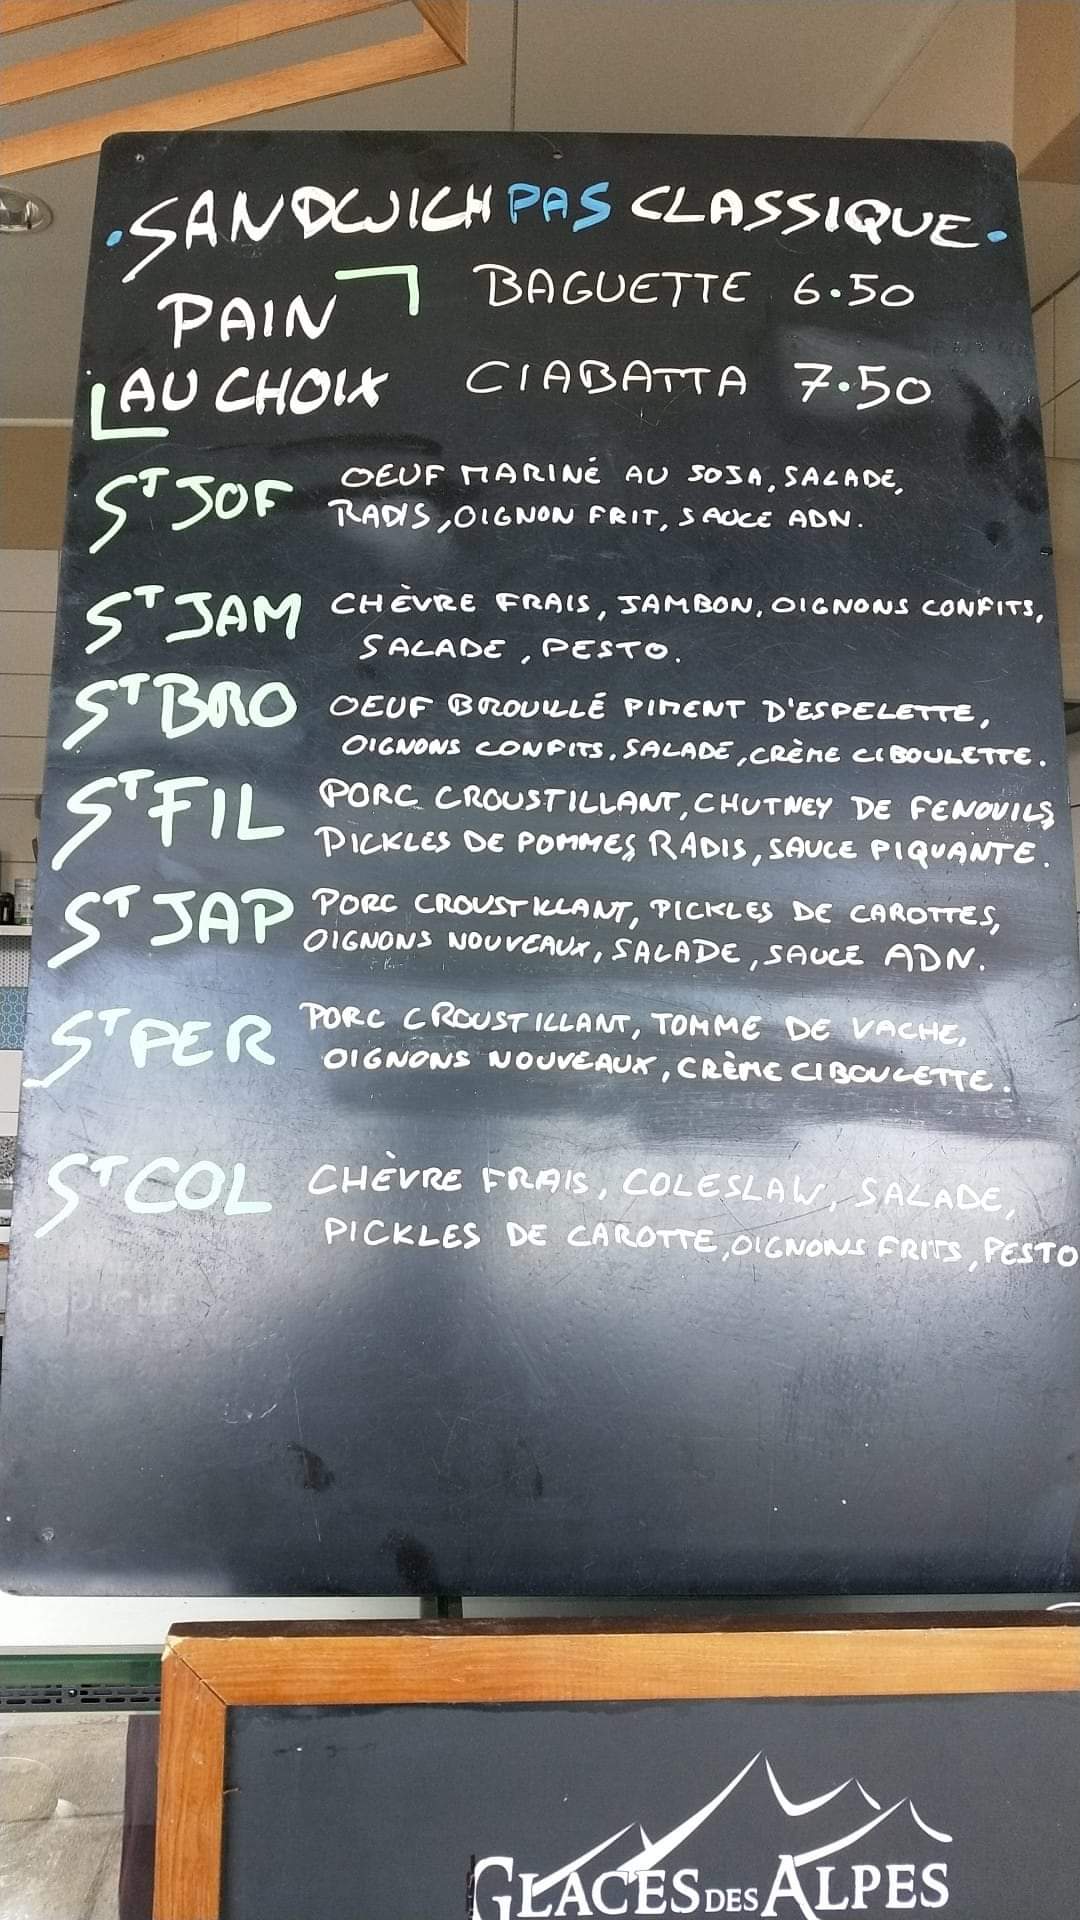 .SANDWICH PAS CLASSIQUE.
PAIN
AU CHOIX
BAGUETTE 6.50
CIABATTA 7.50
ST JOF
OEUF MARINÉ AU SOJA, SALADE,
RADIS, OIGNON FRIT, SAUCE ADN.
ST JAM
CHÈVRE FRAIS, JAMBON, OIGNONS CONFITS,
SALADE, PESTO.
ST BRO
OEUF BROUILLÉ PIMENT D'ESPELETTE,
OIGNONS CONFITS, SALADE, CRÈME CIBOULETTE.
ST FIL
PORC CROUSTILLANT, CHUTNEY DE FENOUILS,
PICKLES DE POMMES, RADIS, SAUCE PIQUANTE.
ST JAP
PORC CROUSTILLANT, PICKLES DE CAROTTES,
OIGNONS NOUVEAUX, SALADE, SAUCE ADN.
ST PER
PORC CROUSTILLANT, TOMME DE VACHE,
OIGNONS NOUVEAUX, CRÈME CIBOULETTE.
ST COL
CHÈVRE FRAIS, COLESLAW, SALADE,
PICKLES DE CAROTTE, OIGNONS FRITS, PESTO
GLACES DES ALPES